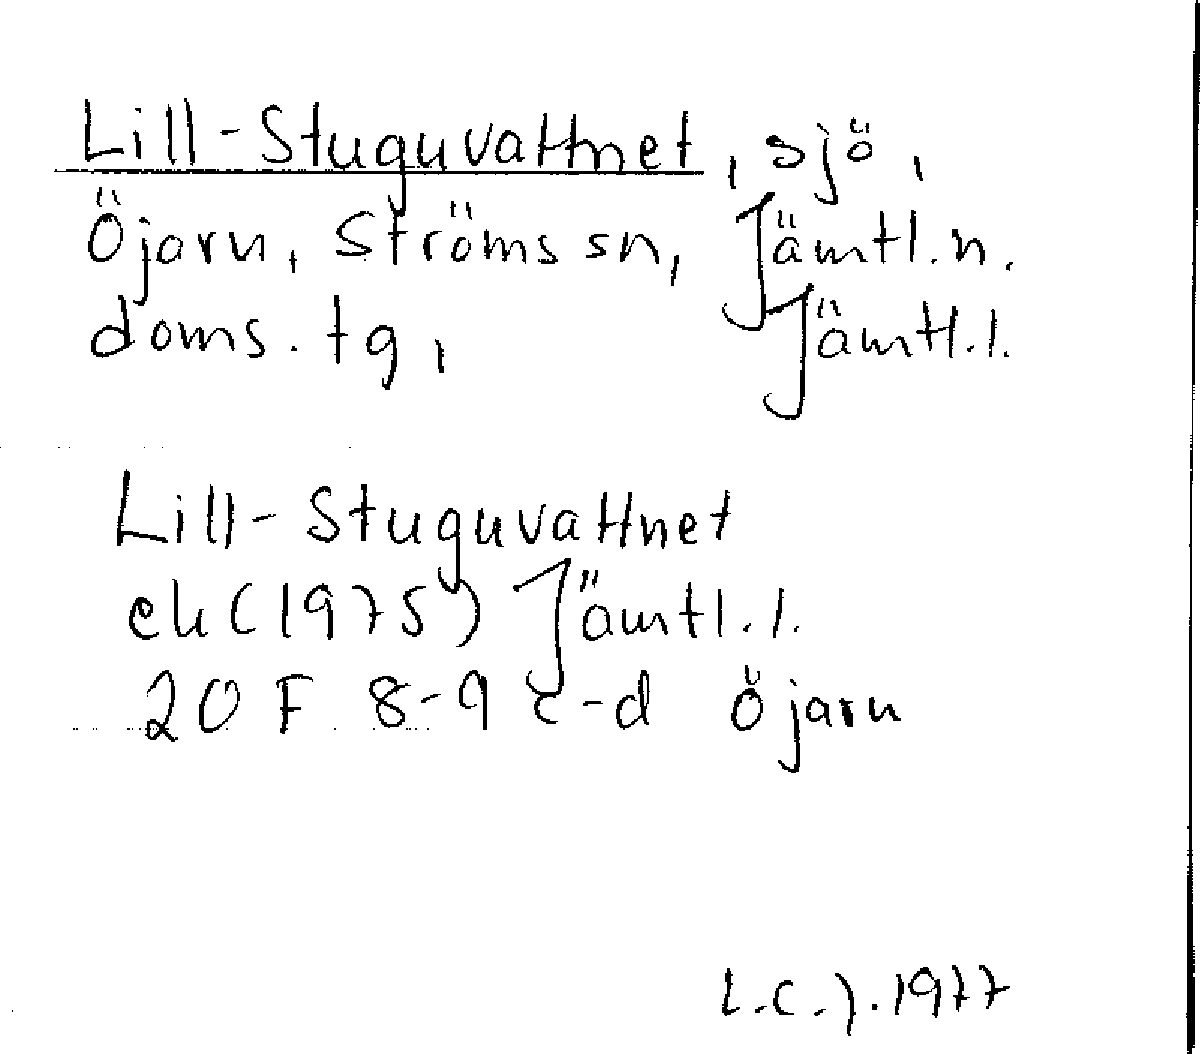 Lill-Stuguvattnet, sjö,
Öjarn, Ströms sn, Jämtl.n.
doms. tg, Jämtl.l.
Lill-Stuguvattnet
ek (1975) Jämtl.l.
20 F 8-9 c-d Öjarn
L.C.J. 1977